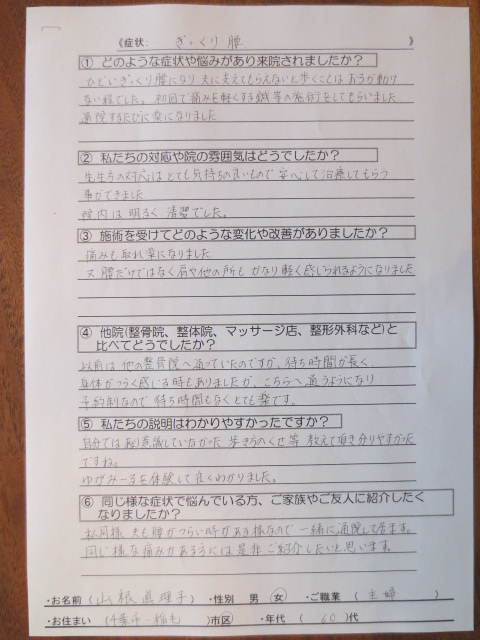 《症状: ぎっくり腰 》
① どのような症状や悩みがあり来院されましたか?
ひどいぎっくり腰になり 夫に支えてもらえないと歩くことはおろか動け
ない程でした。初回で痛みを軽くする鍼等の施術をしてもらいました
通院するたびに楽になりました
② 私たちの対応や院の雰囲気はどうでしたか?
先生方の対応はとても気持ちの良いもので 安心して治療してもらう
事ができました
院内は 明るく 清潔でした。
③ 施術を受けてどのような変化や改善がありましたか?
痛みも取れ楽になりました
又 腰だけではなく肩や他の所も かなり軽く感じられるようになりました
④ 他院(整骨院、整体院、マッサージ店、整形外科など)と
比べてどうでしたか?
以前は 他の整骨院へ通っていたのですが、待ち時間が長く
身体がつらく感じる時もありましたが、こちらへ通うようになり
予約制なので 待ち時間もなくとても楽です。
⑤ 私たちの説明はわかりやすかったですか?
自分では余り意識していなかった 歩き方のくせ等 教えて頂き分りやすかった
ですね。
ゆがみーるを体験して良くわかりました。
⑥ 同じ様な症状で悩んでいる方、ご家族やご友人に紹介したく
なりましたか?
私同様 夫も腰がつらい時がある様なので 一緒に通院して居ます。
同じ様な痛みがある方には是非ご紹介したいと思います。
・お名前 (山根眞理子) ・性別 男 女 ・ご職業 ( 主婦 )
・お住まい (千葉市・稲毛 )市区 ・年代 ( 60 )代